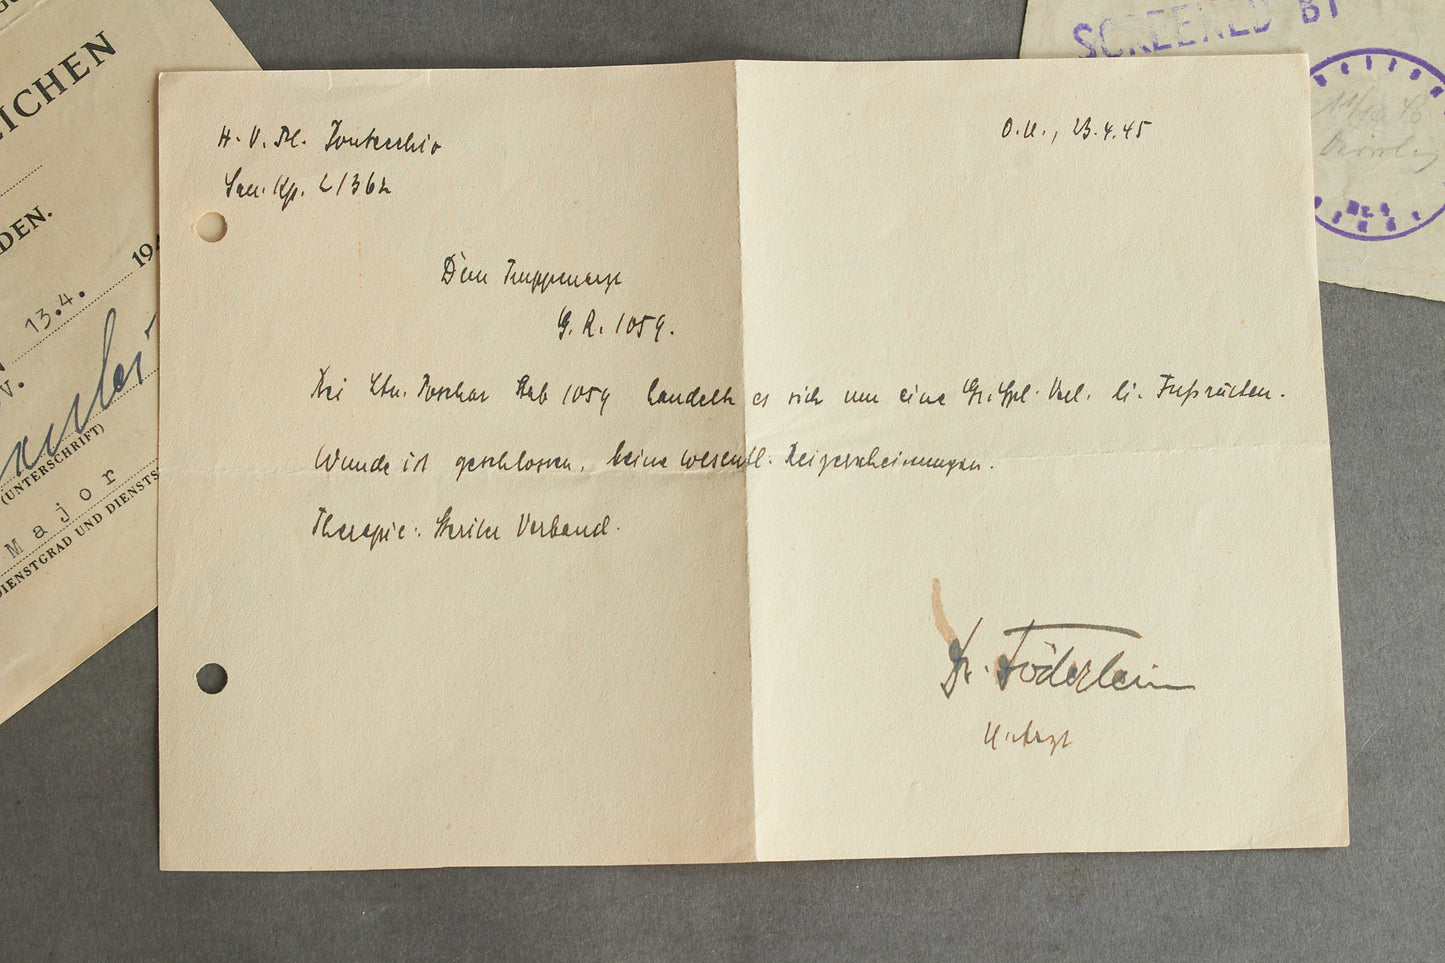 EICHEN
DEN.
13.4. 194
V.
(UNTERSCHRIFT)
Major
DIENSTGRAD UND DIENSTS
SCREENED BY
H. V. Pl.
San. Kp. 2/362
O.U., 23.4.45
Dem Truppenarzt
G. R. 1059.
Bei Ltn. Stab 1059 handelt es sich um eine Gr. Spl. Verl. li. Fußrücken.
Wunde ist geschlossen, keine wesentl. Reizerscheinungen.
Therapie: Steriler Verband.
Dr. Föderlein
U.Arzt